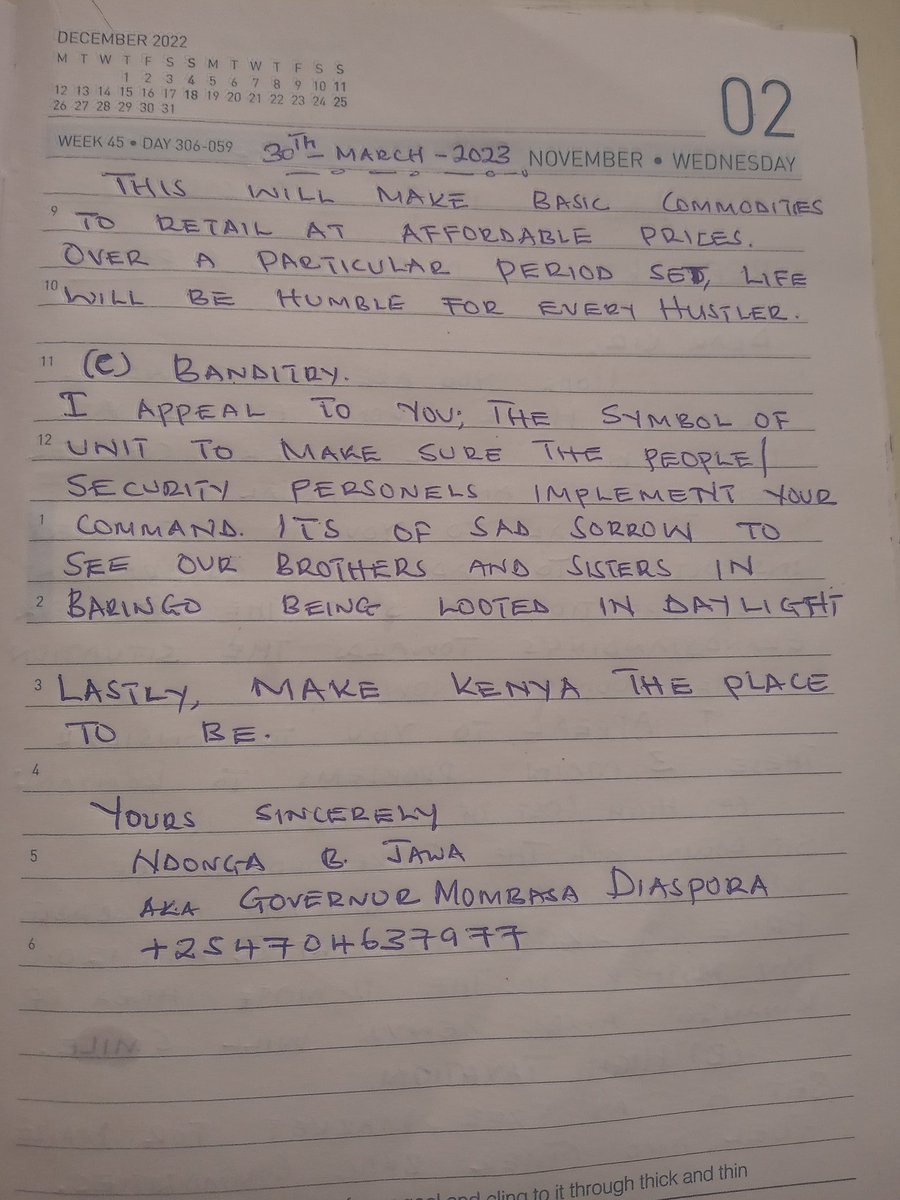 DECEMBER 2022
M T W T F S S M T W T F S S
1 2 3 4 5 6 7 8 9 10 11
12 13 14 15 16 17 18 19 20 21 22 23 24 25
26 27 28 29 30 31
02
WEEK 45 • DAY 306-059 30TH - MARCH - 2023 NOVEMBER • WEDNESDAY
THIS WILL MAKE BASIC COMMODITIES
9 TO RETAIL AT AFFORDABLE PRICES.
OVER A PARTICULAR PERIOD SET, LIFE
10 WILL BE HUMBLE FOR EVERY HUSTLER.
11 (e) BANDITRY.
I APPEAL TO YOU; THE SYMBOL OF
12 UNIT TO MAKE SURE THE PEOPLE/
SECURITY PERSONELS IMPLEMENT YOUR
1 COMMAND. ITS OF SAD SORROW TO
SEE OUR BROTHERS AND SISTERS IN
2 BARINGO BEING LOOTED IN DAYLIGHT
3 LASTLY, MAKE KENYA THE PLACE
TO BE.
4
YOURS SINCERELY
5 NDONGA B. JAWA
AKA GOVERNUR MOMBASA DIASPORA
6 +254704637977
and cling to it through thick and thin